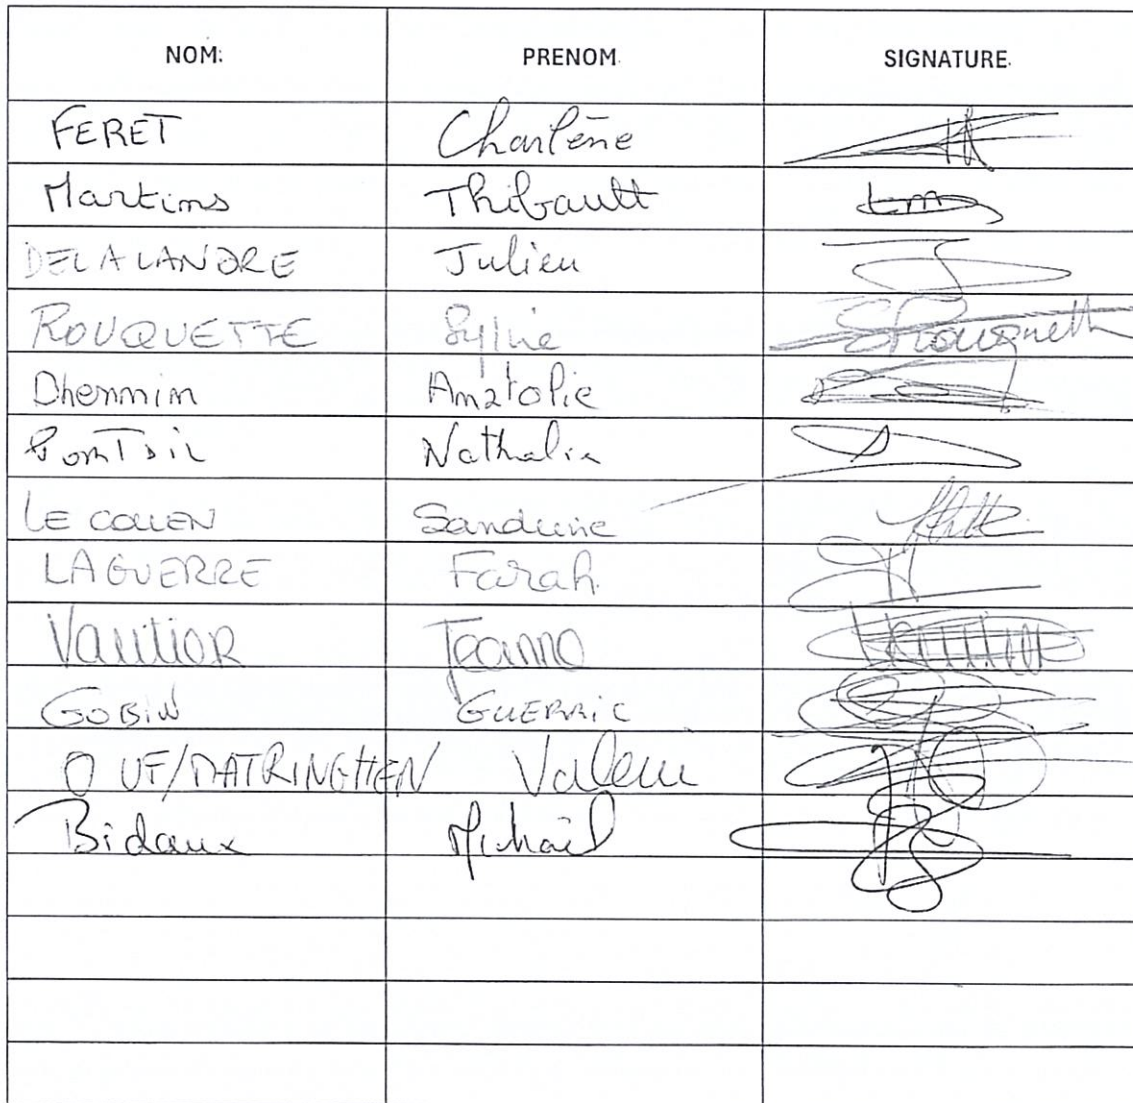 NOM: PRENOM SIGNATURE
FERET Charlène
Martins Thibault tm
DELALANDRE Julien
ROUQUETTE Sylvie SRouquett
Dhennin Anatolie
Nathalie
LE COUEN Sandrine
LAGUERRE Farah
Vautier Jeanne
GOBIN GUERRIC
OUF/MATRINGHEN
Bidaux Michaël